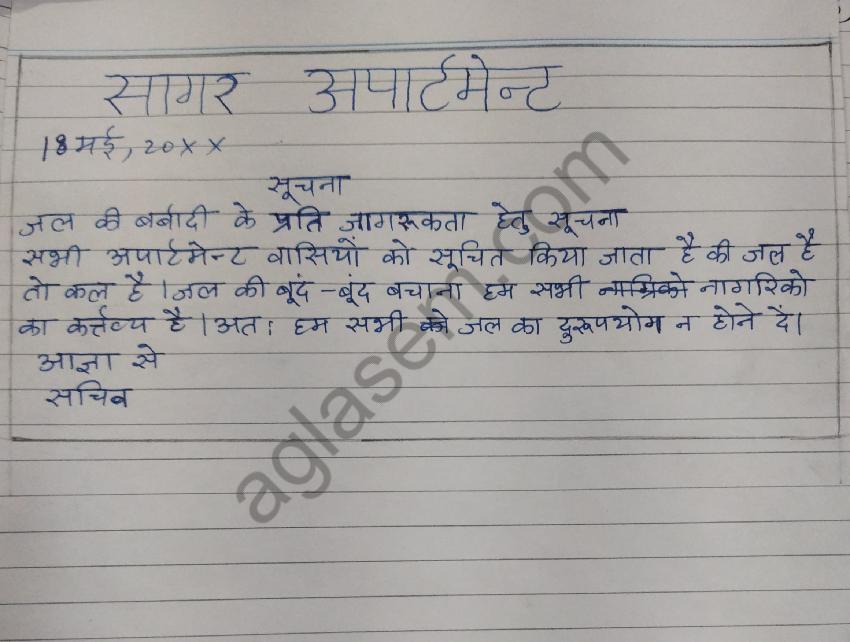 सागर अपार्टमेन्ट
18 मई, 20XX
सूचना
जल की बर्बादी के प्रति जागरूकता हेतु सूचना
सभी अपार्टमेन्ट वासियों को सूचित किया जाता है की जल है
तो कल है। जल की बूंद-बूंद बचाना हम सभी नागरिको
का कर्त्तव्य है। अतः हम सभी जल का दुरूपयोग न होने दें।
आज्ञा से
सचिव
aglasem.com